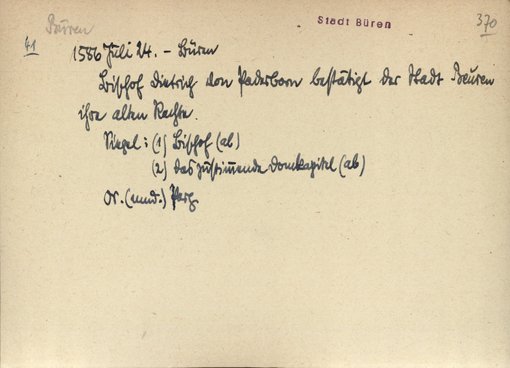 Büren
Stadt Büren
370
41
1586 Juli 24. - Büren
Bischof Dietrich von Paderborn bestätigt der Stadt Beuren
ihre alten Rechte.
Siegel: (1) Bischof (ab)
(2) das zustimmende Domkapitel (ab)
Or. (mud.) Perg.